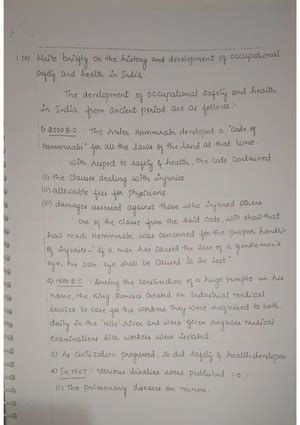 1. (a) Write briefly on the history and development of occupational
safety and health in India.
The development of occupational safety and health
in India from ancient period are as follows:-
1) 2000 B.C : The ruler Hammurabi developed a "code of
Hammurabi" for all the laws of the land at that time.
With respect to safety & health, the code contained
(i) The clauses dealing with injuries
(ii) allowable fees for physicians
(iii) damages assessed against those who injured others
One of the clause from the said code will show that
how much Hammurabi was concerned for the proper handling
of injuries - "if a man has caused the loss of a gentleman's
eye, his own eye shall be caused to be lost"
2) 1500 B.C : During the construction of a huge temple in his
name, the king Rameses created an industrial medical
service to care for the workers they were required to bath
daily in the 'Nile' River and were given regular medical
examinations sick workers were isolated.
3) As civilization progressed, so did safety & health
4) In 1567 : Various treatise were published i.e.
(i) The pulmonary diseases on miners.